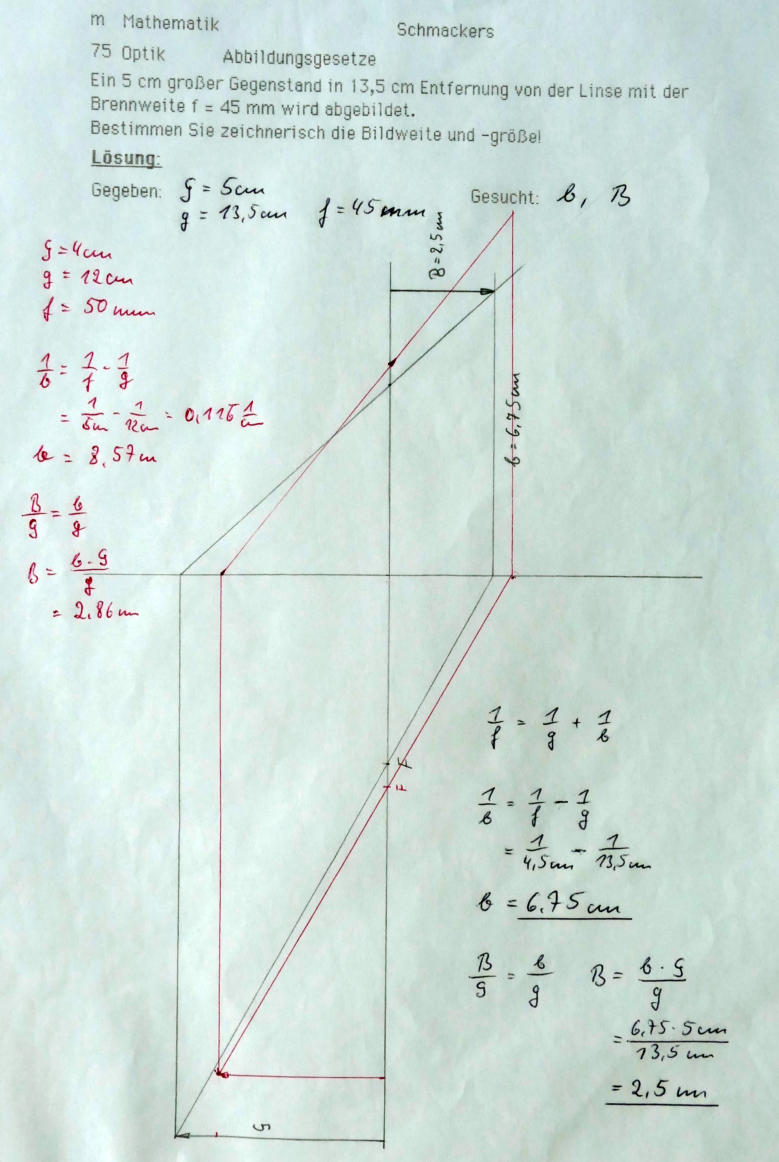 m Mathematik Schmackers
75 Optik Abbildungsgesetze
Ein 5 cm großer Gegenstand in 13,5 cm Entfernung von der Linse mit der
Brennweite f = 45 mm wird abgebildet.
Bestimmen Sie zeichnerisch die Bildweite und -größe!
Lösung:
Gegeben: G = 5cm Gesucht: b, B
g = 13,5cm f = 45mm
G = 4cm
g = 12cm
f = 50mm
1/b = 1/f - 1/g
= 1/5cm - 1/12cm =
b = 8,57cm
B/G = b/g
B = b · G / g
= 2,86cm
B = 2,5cm
b = 6,75cm
F
F
G
1/f = 1/g + 1/b
1/b = 1/f - 1/g
= 1/4,5cm - 1/13,5cm
b = 6,75cm
B/G = b/g B = b · G / g
= 6,75 · 5cm / 13,5cm
= 2,5cm